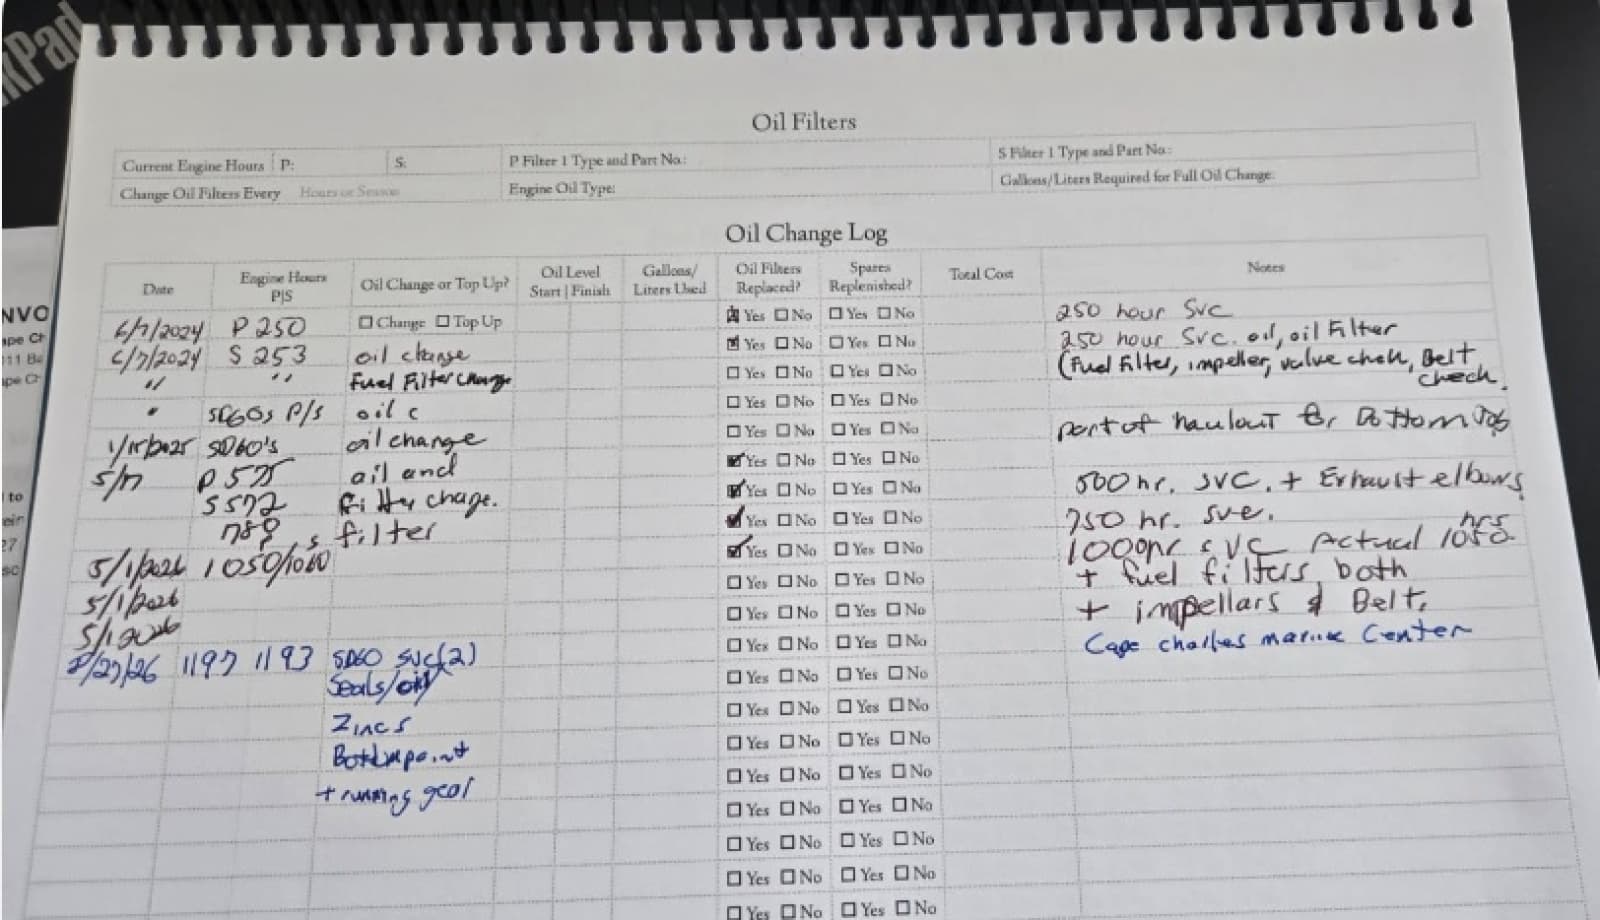 kPad
NVO
ape Ch
11 Ba
ape Ch
to
ein
27
sc
Oil Filters
Current Engine Hours P: S: P Filter 1 Type and Part No.: S Filter 1 Type and Part No.:
Change Oil Filters Every Hours or Season Engine Oil Type: Gallons/Liters Required for Full Oil Change:
Oil Change Log
Date Engine Hours P|S Oil Change or Top Up? Oil Level Start | Finish Gallons/ Liters Used Oil Filters Replaced? Spares Replenished? Total Cost Notes
6/7/2024 P 250 ☐ Change ☐ Top Up ☒ Yes ☐ No ☐ Yes ☐ No 250 hour Svc
6/7/2024 S 253 oil change ☒ Yes ☐ No ☐ Yes ☐ No 250 hour Svc. oil, oil Filter
" " Fuel Filter change ☐ Yes ☐ No ☐ Yes ☐ No (Fuel Filter, impeller, valve check, Belt check,
" SD60s P/S oil c ☐ Yes ☐ No ☐ Yes ☐ No
1/15/2025 SD60's oil change ☐ Yes ☐ No ☐ Yes ☐ No part of haulout for Bottom Job
5/7 P 575 oil and ☑ Yes ☐ No ☐ Yes ☐ No
S 572 filter change. ☑ Yes ☐ No ☐ Yes ☐ No 500 hr. SVC. + Exhaust elbows
789 , s filter ☑ Yes ☐ No ☐ Yes ☐ No 750 hr. sve.
5/1/2026 1050/1060 ☑ Yes ☐ No ☐ Yes ☐ No 1000hr SVC Actual 1050 hrs
5/1/2026 ☐ Yes ☐ No ☐ Yes ☐ No + fuel filters both
5/1 2026 ☐ Yes ☐ No ☐ Yes ☐ No + impellars & Belt.
/27/26 1197 1193 SD60 SVC(2) ☐ Yes ☐ No ☐ Yes ☐ No Cape Charles marine Center
Seals/oil ☐ Yes ☐ No ☐ Yes ☐ No
Zincs ☐ Yes ☐ No ☐ Yes ☐ No
Bottompaint ☐ Yes ☐ No ☐ Yes ☐ No
+ running gear ☐ Yes ☐ No ☐ Yes ☐ No
☐ Yes ☐ No ☐ Yes ☐ No
☐ Yes ☐ No ☐ Yes ☐ No
☐ Yes ☐ No ☐ Yes ☐ No
☐ Yes ☐ No ☐ Yes ☐ No